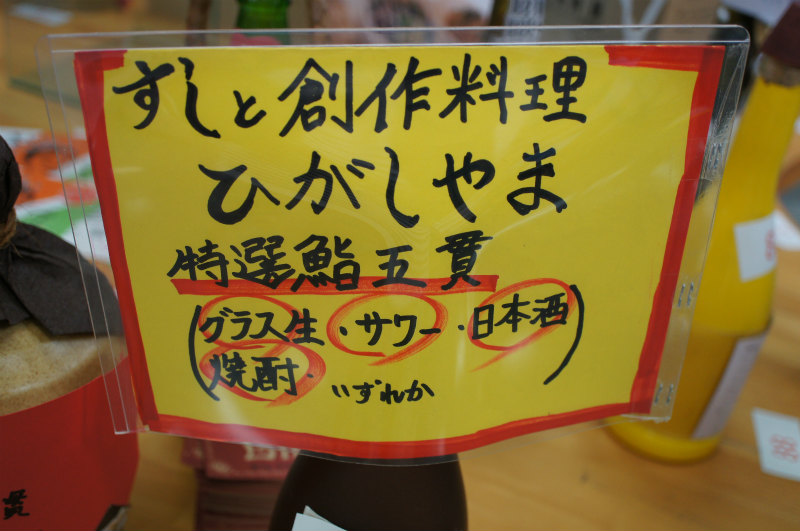 すしと創作料理
ひがしやま
特選鮨五貫
(グラス生・サワー・日本酒
焼酎・いずれか)
貫